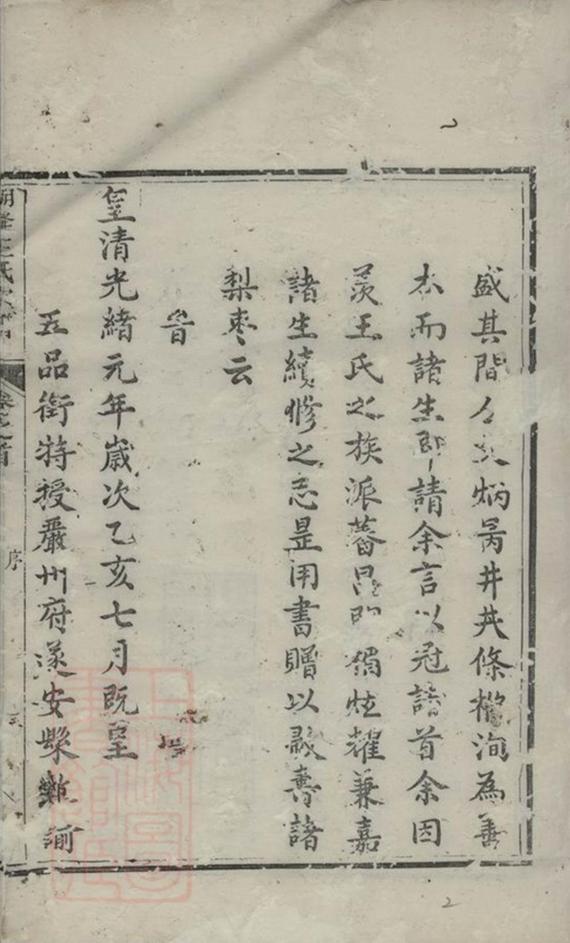 盛其間人文炳蔚井井條
洵為善
本而諸生即請余言以冠譜首余因
羨王氏之族派蕃昌
炫耀兼嘉
諸生續修之志是用書贈以
壽諸
梨棗云
旹
皇清光緒元年歲次乙亥七月既望
五品銜特授嚴州府遂安縣
序